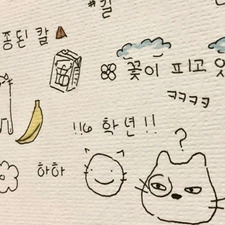 #길
종된 칼
꽃이 피고 있
ㅋㅋㅋㅋ
!!6 학년!!
하하
?